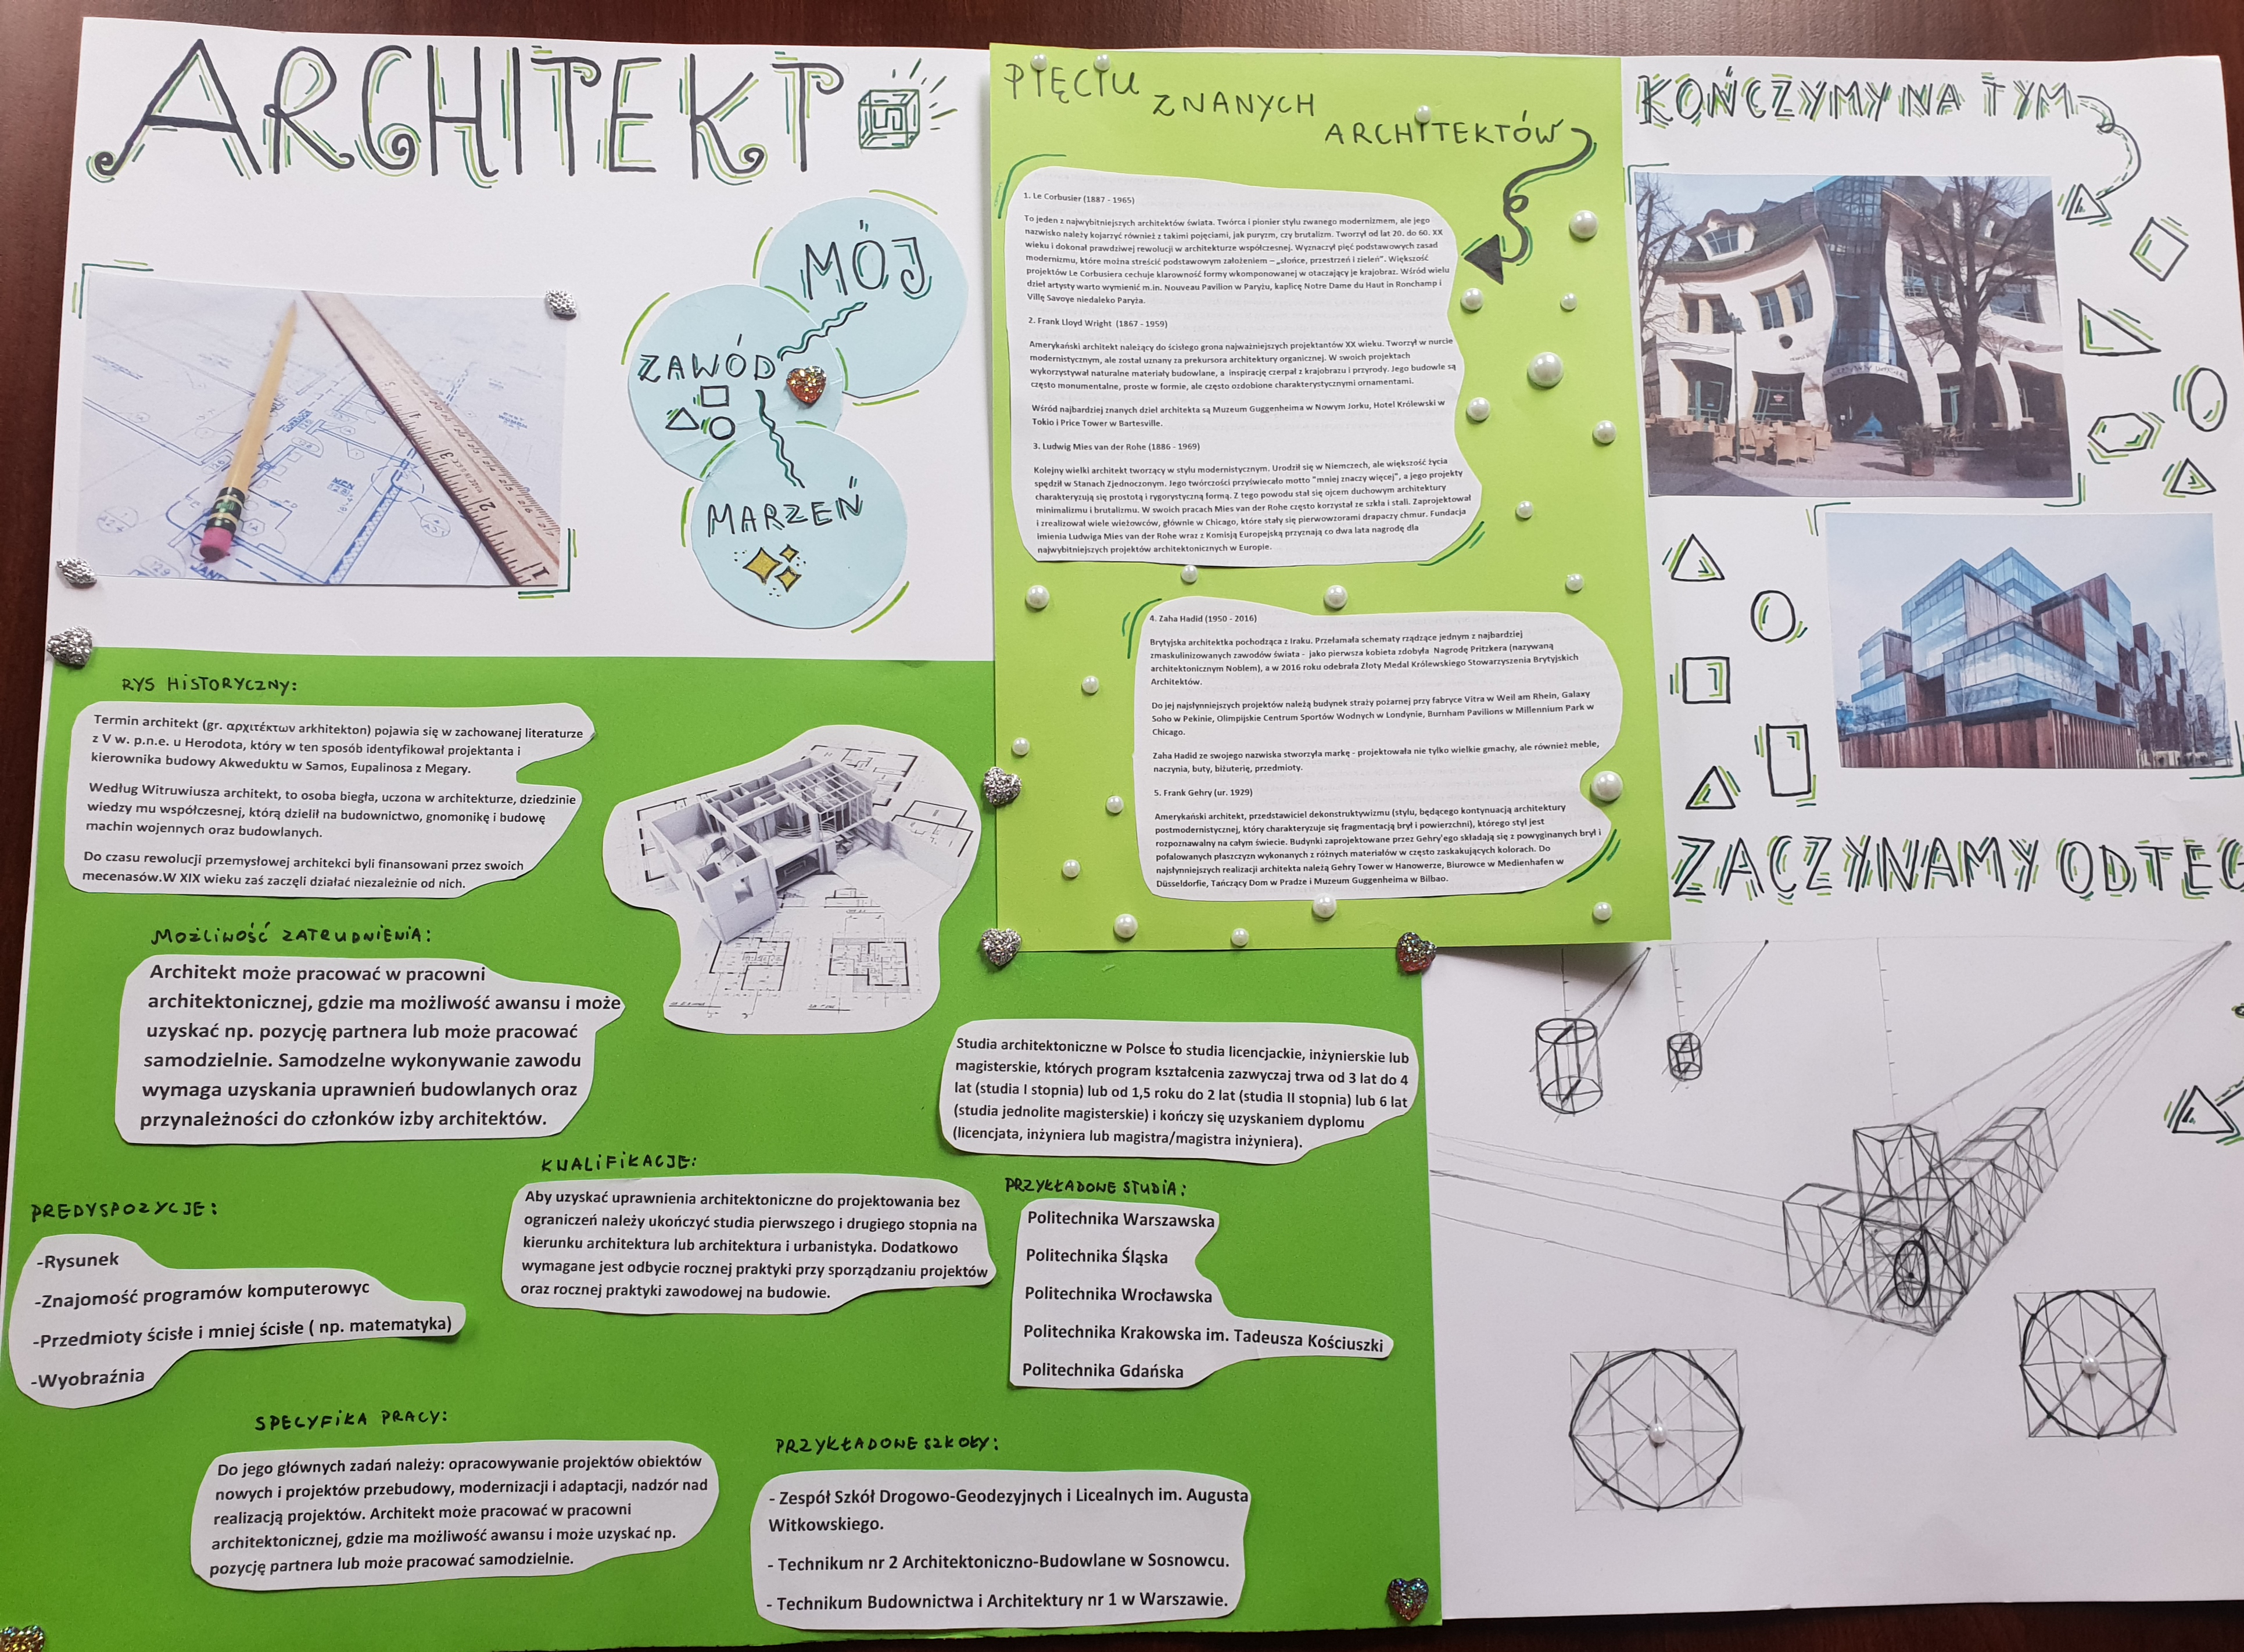 ARCHITEKT
MÓJ
ZAWÓD
MARZEŃ
RYS HISTORYCZNY:
Termin architekt (gr. αρχιτέκτων arkhitekton) pojawia się w zachowanej literaturze
z V w. p.n.e. u Herodota, który w ten sposób identyfikował projektanta i
kierownika budowy Akweduktu w Samos, Eupalinosa z Megary.
Według Witruwiusza architekt, to osoba biegła, uczona w architekturze, dziedzinie
wiedzy mu współczesnej, którą dzielił na budownictwo, gnomonikę i budowę
machin wojennych oraz budowlanych.
Do czasu rewolucji przemysłowej architekci byli finansowani przez swoich
mecenasów.W XIX wieku zaś zaczęli działać niezależnie od nich.
MOŻLIWOŚĆ ZATRUDNIENIA:
Architekt może pracować w pracowni
architektonicznej, gdzie ma możliwość awansu i może
uzyskać np. pozycję partnera lub może pracować
samodzielnie. Samodzelne wykonywanie zawodu
wymaga uzyskania uprawnień budowlanych oraz
przynależności do członków izby architektów.
PREDYSPOZYCJE:
-Rysunek
-Znajomość programów komputerowyc
-Przedmioty ścisłe i mniej ścisłe ( np. matematyka)
-Wyobraźnia
KWALIFIKACJE:
Aby uzyskać uprawnienia architektoniczne do projektowania bez
ograniczeń należy ukończyć studia pierwszego i drugiego stopnia na
kierunku architektura lub architektura i urbanistyka. Dodatkowo
wymagane jest odbycie rocznej praktyki przy sporządzaniu projektów
oraz rocznej praktyki zawodowej na budowie.
SPECYFIKA PRACY:
Do jego głównych zadań należy: opracowywanie projektów obiektów
nowych i projektów przebudowy, modernizacji i adaptacji, nadzór nad
realizacją projektów. Architekt może pracować w pracowni
architektonicznej, gdzie ma możliwość awansu i może uzyskać np.
pozycję partnera lub może pracować samodzielnie.
Studia architektoniczne w Polsce to studia licencjackie, inżynierskie lub
magisterskie, których program kształcenia zazwyczaj trwa od 3 lat do 4
lat (studia I stopnia) lub od 1,5 roku do 2 lat (studia II stopnia) lub 6 lat
(studia jednolite magisterskie) i kończy się uzyskaniem dyplomu
(licencjata, inżyniera lub magistra/magistra inżyniera).
PRZYKŁADOWE STUDIA:
Politechnika Warszawska
Politechnika Śląska
Politechnika Wrocławska
Politechnika Krakowska im. Tadeusza Kościuszki
Politechnika Gdańska
PRZYKŁADOWE SZKOŁY:
- Zespół Szkół Drogowo-Geodezyjnych i Licealnych im. Augusta
Witkowskiego.
- Technikum nr 2 Architektoniczno-Budowlane w Sosnowcu.
- Technikum Budownictwa i Architektury nr 1 w Warszawie.
PIĘCIU
ZNANYCH
ARCHITEKTÓW
1. Le Corbusier (1887 - 1965)
To jeden z najwybitniejszych architektów świata. Twórca i pionier stylu zwanego modernizmem, ale jego
nazwisko należy kojarzyć również z takimi pojęciami, jak puryzm, czy brutalizm. Tworzył od lat 20. do 60. XX
wieku i dokonał prawdziwej rewolucji w architekturze współczesnej. Wyznaczył pięć podstawowych zasad
modernizmu, które można streścić podstawowym założeniem – „słońce, przestrzeń i zieleń”. Większość
projektów Le Corbusiera cechuje klarowność formy wkomponowanej w otaczający je krajobraz. Wśród wielu
dzieł artysty warto wymienić m.in. Nouveau Pavilion w Paryżu, kaplicę Notre Dame du Haut in Ronchamp i
Villę Savoye niedaleko Paryża.
2. Frank Lloyd Wright (1867 - 1959)
Amerykański architekt należący do ścisłego grona najważniejszych projektantów XX wieku. Tworzył w nurcie
modernistycznym, ale został uznany za prekursora architektury organicznej. W swoich projektach
wykorzystywał naturalne materiały budowlane, a inspirację czerpał z krajobrazu i przyrody. Jego budowle są
często monumentalne, proste w formie, ale często ozdobione charakterystycznymi ornamentami.
Wśród najbardziej znanych dzieł architekta są Muzeum Guggenheima w Nowym Jorku, Hotel Królewski w
Tokio i Price Tower w Bartesville.
3. Ludwig Mies van der Rohe (1886 - 1969)
Kolejny wielki architekt tworzący w stylu modernistycznym. Urodził się w Niemczech, ale większość życia
spędził w Stanach Zjednoczonym. Jego twórczości przyświecało motto "mniej znaczy więcej", a jego projekty
charakteryzują się prostotą i rygorystyczną formą. Z tego powodu stał się ojcem duchowym architektury
minimalizmu i brutalizmu. W swoich pracach Mies van der Rohe często korzystał ze szkła i stali. Zaprojektował
i zrealizował wiele wieżowców, głównie w Chicago, które stały się pierwowzorami drapaczy chmur. Fundacja
imienia Ludwiga Mies van der Rohe wraz z Komisją Europejską przyznają co dwa lata nagrodę dla
najwybitniejszych projektów architektonicznych w Europie.
4. Zaha Hadid (1950 - 2016)
Brytyjska architektka pochodząca z Iraku. Przełamała schematy rządzące jednym z najbardziej
zmaskulinizowanych zawodów świata - jako pierwsza kobieta zdobyła Nagrodę Pritzkera (nazywaną
architektonicznym Noblem), a w 2016 roku odebrała Złoty Medal Królewskiego Stowarzyszenia Brytyjskich
Architektów.
Do jej najsłynniejszych projektów należą budynek straży pożarnej przy fabryce Vitra w Weil am Rhein, Galaxy
Soho w Pekinie, Olimpijskie Centrum Sportów Wodnych w Londynie, Burnham Pavilions w Millennium Park w
Chicago.
Zaha Hadid ze swojego nazwiska stworzyła markę - projektowała nie tylko wielkie gmachy, ale również meble,
naczynia, buty, biżuterię, przedmioty.
5. Frank Gehry (ur. 1929)
Amerykański architekt, przedstawiciel dekonstruktywizmu (stylu, będącego kontynuacją architektury
postmodernistycznej, który charakteryzuje się fragmentacją brył i powierzchni), którego styl jest
rozpoznawalny na całym świecie. Budynki zaprojektowane przez Gehry'ego składają się z powyginanych brył i
pofalowanych płaszczyzn wykonanych z różnych materiałów w często zaskakujących kolorach. Do
najsłynniejszych realizacji architekta należą Gehry Tower w Hanowerze, Biurowce w Medienhafen w
Düsseldorfie, Tańczący Dom w Pradze i Muzeum Guggenheima w Bilbao.
KOŃCZYMY NA TYM
ZACZYNAMY OD TEG